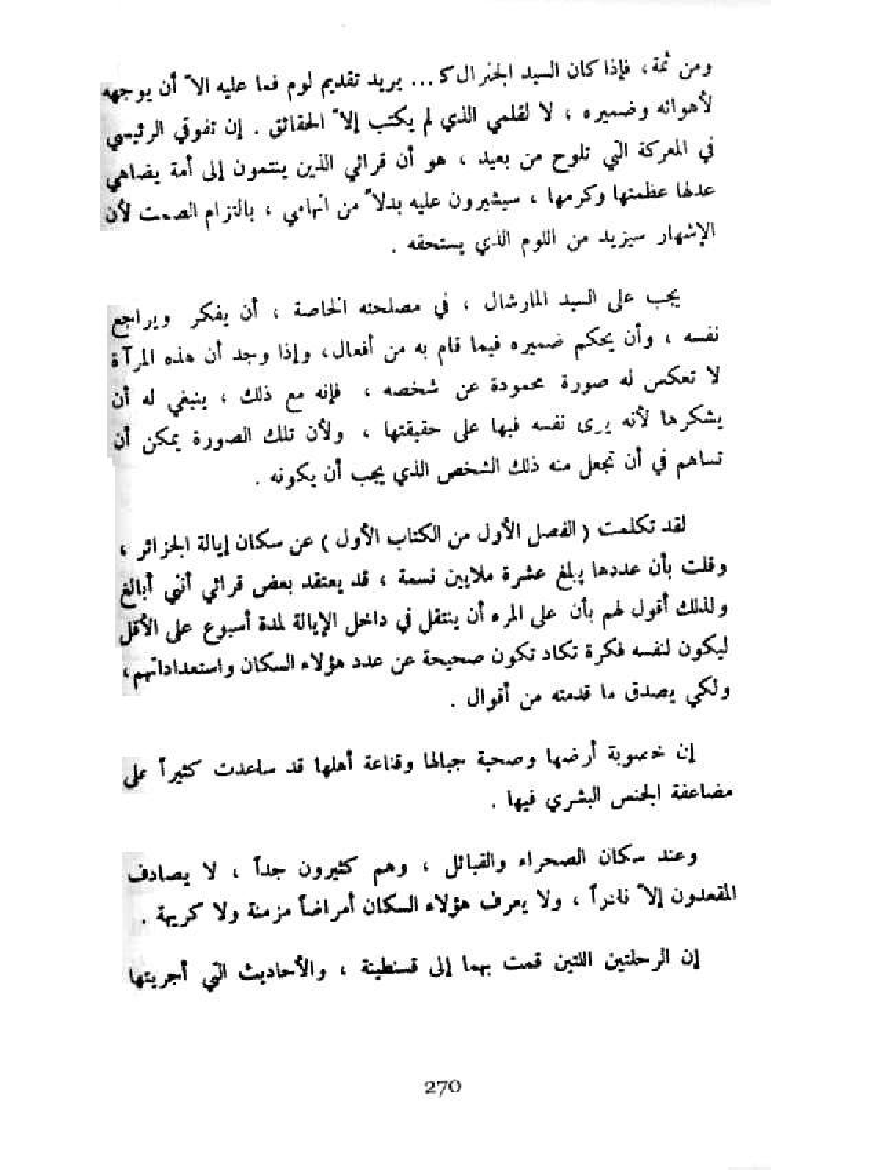 ومن ثمة، فإذا كان السيد الجنرال ك... يريد تقديم لوم فما عليه الاّ أن يوجهه
لأهوائه وضميره ، لا لقلمي الذي لم يكتب إلاّ الحقائق . إن تفوقي الرئيسي
في المعركة التي تلوح من بعيد ، هو أن قرائي الذين ينتمون إلى أمة يضاهي
عدلها عظمتها وكرمها ، سيشيرون عليه بدلاً من اتهامي ، بالتزام الصمت لأن
الإشهار سيزيد من اللوم الذي يستحقه .
يجب على السيد المارشال ، في مصلحته الخاصة ، أن يفكر ويراجع
نفسه ، وأن يحكم ضميره فيما قام به من أفعال، وإذا وجد أن هذه المرآة
لا تعكس له صورة محمودة عن شخصه ، فإنه مع ذلك ، ينبغي له أن
يشكرها لأنه يرى نفسه فيها على حقيقتها ، ولأن تلك الصورة يمكن أن
تساهم في أن تجعل منه ذلك الشخص الذي يجب أن يكونه .
لقد تكلمت ( الفصل الأول من الكتاب الأول ) عن سكان إيالة الجزائر ،
وقلت بأن عددها يبلغ عشرة ملايين نسمة ، قد يعتقد بعض قرائي أنني أبالغ
ولذلك أقول لهم بأن على المرء أن ينتقل في داخل الإيالة لمدة أسبوع على الأقل
ليكون لنفسه فكرة تكاد تكون صحيحة عن عدد هؤلاء السكان واستعداداتهم،
ولكي يصدق ما قدمته من أقوال .
إن خصوبة أرضها وصحية جبالها وقناعة أهلها قد ساعدت كثيراً على
مضاعفة الجنس البشري فيها .
وعند سكان الصحراء والقبائل ، وهم كثيرون جداً ، لا يصادف
المقعدون إلاّ نادراً ، ولا يعرف هؤلاء السكان أمراضاً مزمنة ولا كريهة .
إن الرحلتين اللتين قمت بهما إلى قسنطينة ، والأحاديث التي أجريتها
270